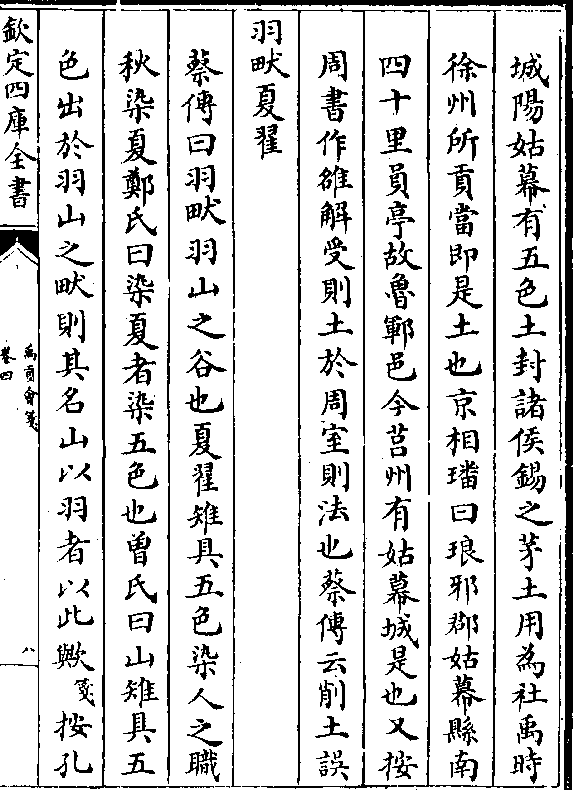 城陽姑幕有五色土封諸侯錫之茅土用為社禹時
徐州所貢當即是土也京相璠曰琅邪郡姑幕縣南
四十里員亭故魯鄆邑今莒州有姑幕城是也又按
周書作雒解受則土於周室則法也蔡傳云削土誤
羽畎夏翟
蔡傳曰羽畎羽山之谷也夏翟雉具五色染人之職
秋染夏鄭氏曰染夏者染五色也曾氏曰山雉具五
色出於羽山之畎則其名山以羽者以此歟箋按孔
欽定四庫全書
禹貢會箋
卷四
八